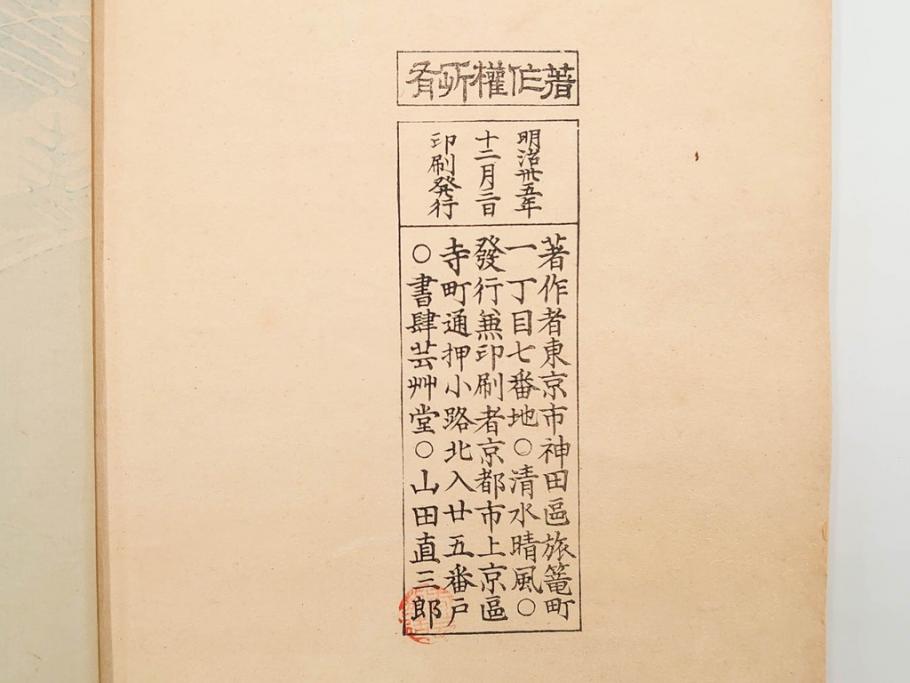 著作權所有
明治卅五年
十二月三日
印刷発行
著作者東京市神田區旅篭町
一丁目七番地○清水晴風○
發行兼印刷者京都市上京區
寺町通押小路北入廿五番戸
○書肆芸艸堂○山田直三郎